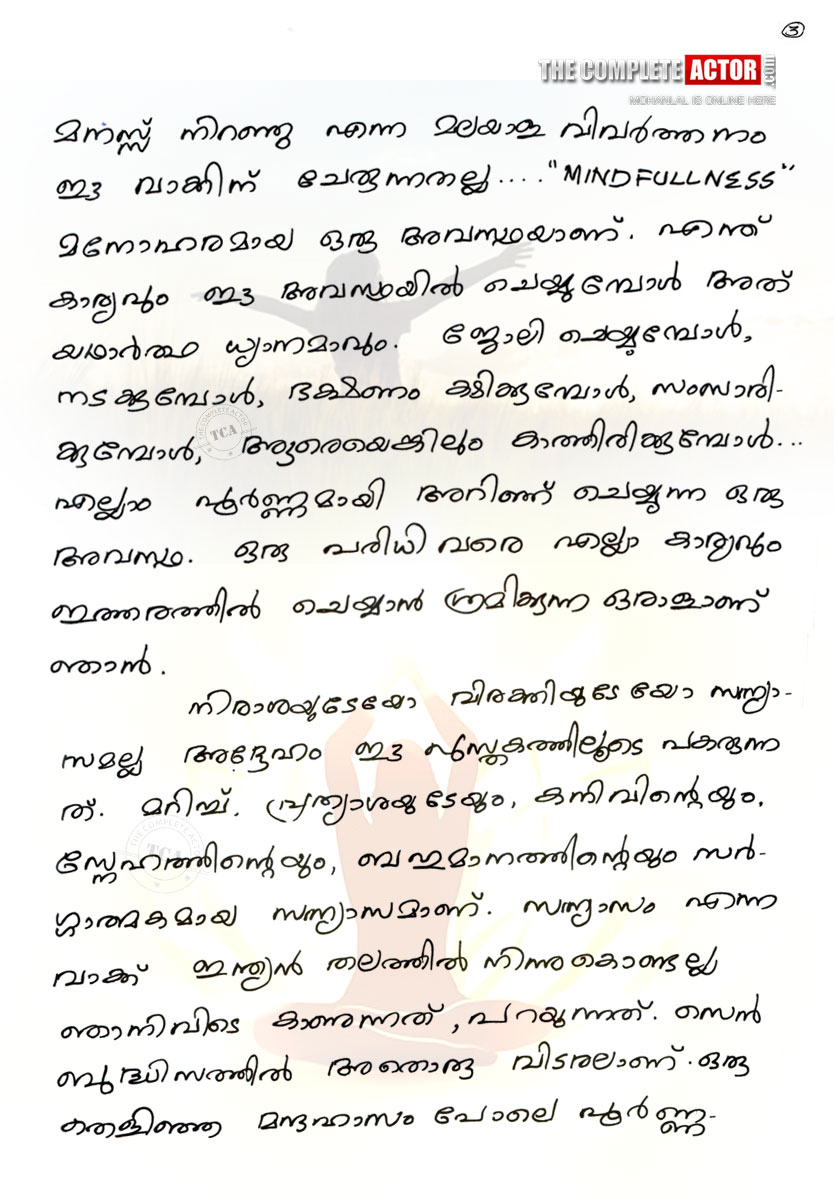 3
THE COMPLETE ACTOR .com
MOHANLAL IS ONLINE HERE
മനസ്സ് നിറഞ്ഞു എന്ന മലയാള വിവർത്തനം
ഈ വാക്കിന് ചേരുന്നതല്ല.... "MINDFULLNESS"
മനോഹരമായ ഒരു അവസ്ഥയാണ്. എന്ത്
കാര്യവും ഈ അവസ്ഥയിൽ ചെയ്യുമ്പോൾ അത്
യഥാർത്ഥ ധ്യാനമാവും. ജോലി ചെയ്യുമ്പോൾ,
നടക്കുമ്പോൾ, ഭക്ഷണം കഴിക്കുമ്പോൾ, സംസാരി-
ക്കുമ്പോൾ, ആരെയെങ്കിലും കാത്തിരിക്കുമ്പോൾ...
എല്ലാം പൂർണ്ണമായി അറിഞ്ഞ് ചെയ്യുന്ന ഒരു
അവസ്ഥ. ഒരു പരിധി വരെ എല്ലാ കാര്യവും
ഇത്തരത്തിൽ ചെയ്യാൻ ശ്രമിക്കുന്ന ഒരാളാണ്
ഞാൻ.
നിരാശയുടേയോ വിരക്തിയുടേയോ സന്ന്യാ-
സമല്ല അദ്ദേഹം ഈ പുസ്തകത്തിലൂടെ പകരുന്ന
ത്. മറിച്ച്. പ്രത്യാശയുടേയും, കനിവിന്റെയും,
സ്നേഹത്തിന്റെയും, ബഹുമാനത്തിന്റെയും സർ-
ഗ്ഗാത്മകമായ സന്ന്യാസമാണ്. സന്ന്യാസം എന്ന
വാക്ക് ഇന്ത്യൻ തലത്തിൽ നിന്നുകൊണ്ടല്ല
ഞാനിവിടെ കാണുന്നത്, പറയുന്നത്. സെൻ
ബുദ്ധിസത്തിൽ അതൊരു വിടരലാണ്. ഒരു
തെളിഞ്ഞ മന്ദഹാസം പോലെ പൂർണ്ണ-
THE COMPLETE ACTOR
TCA
THE COMPLETE ACTOR
TCA